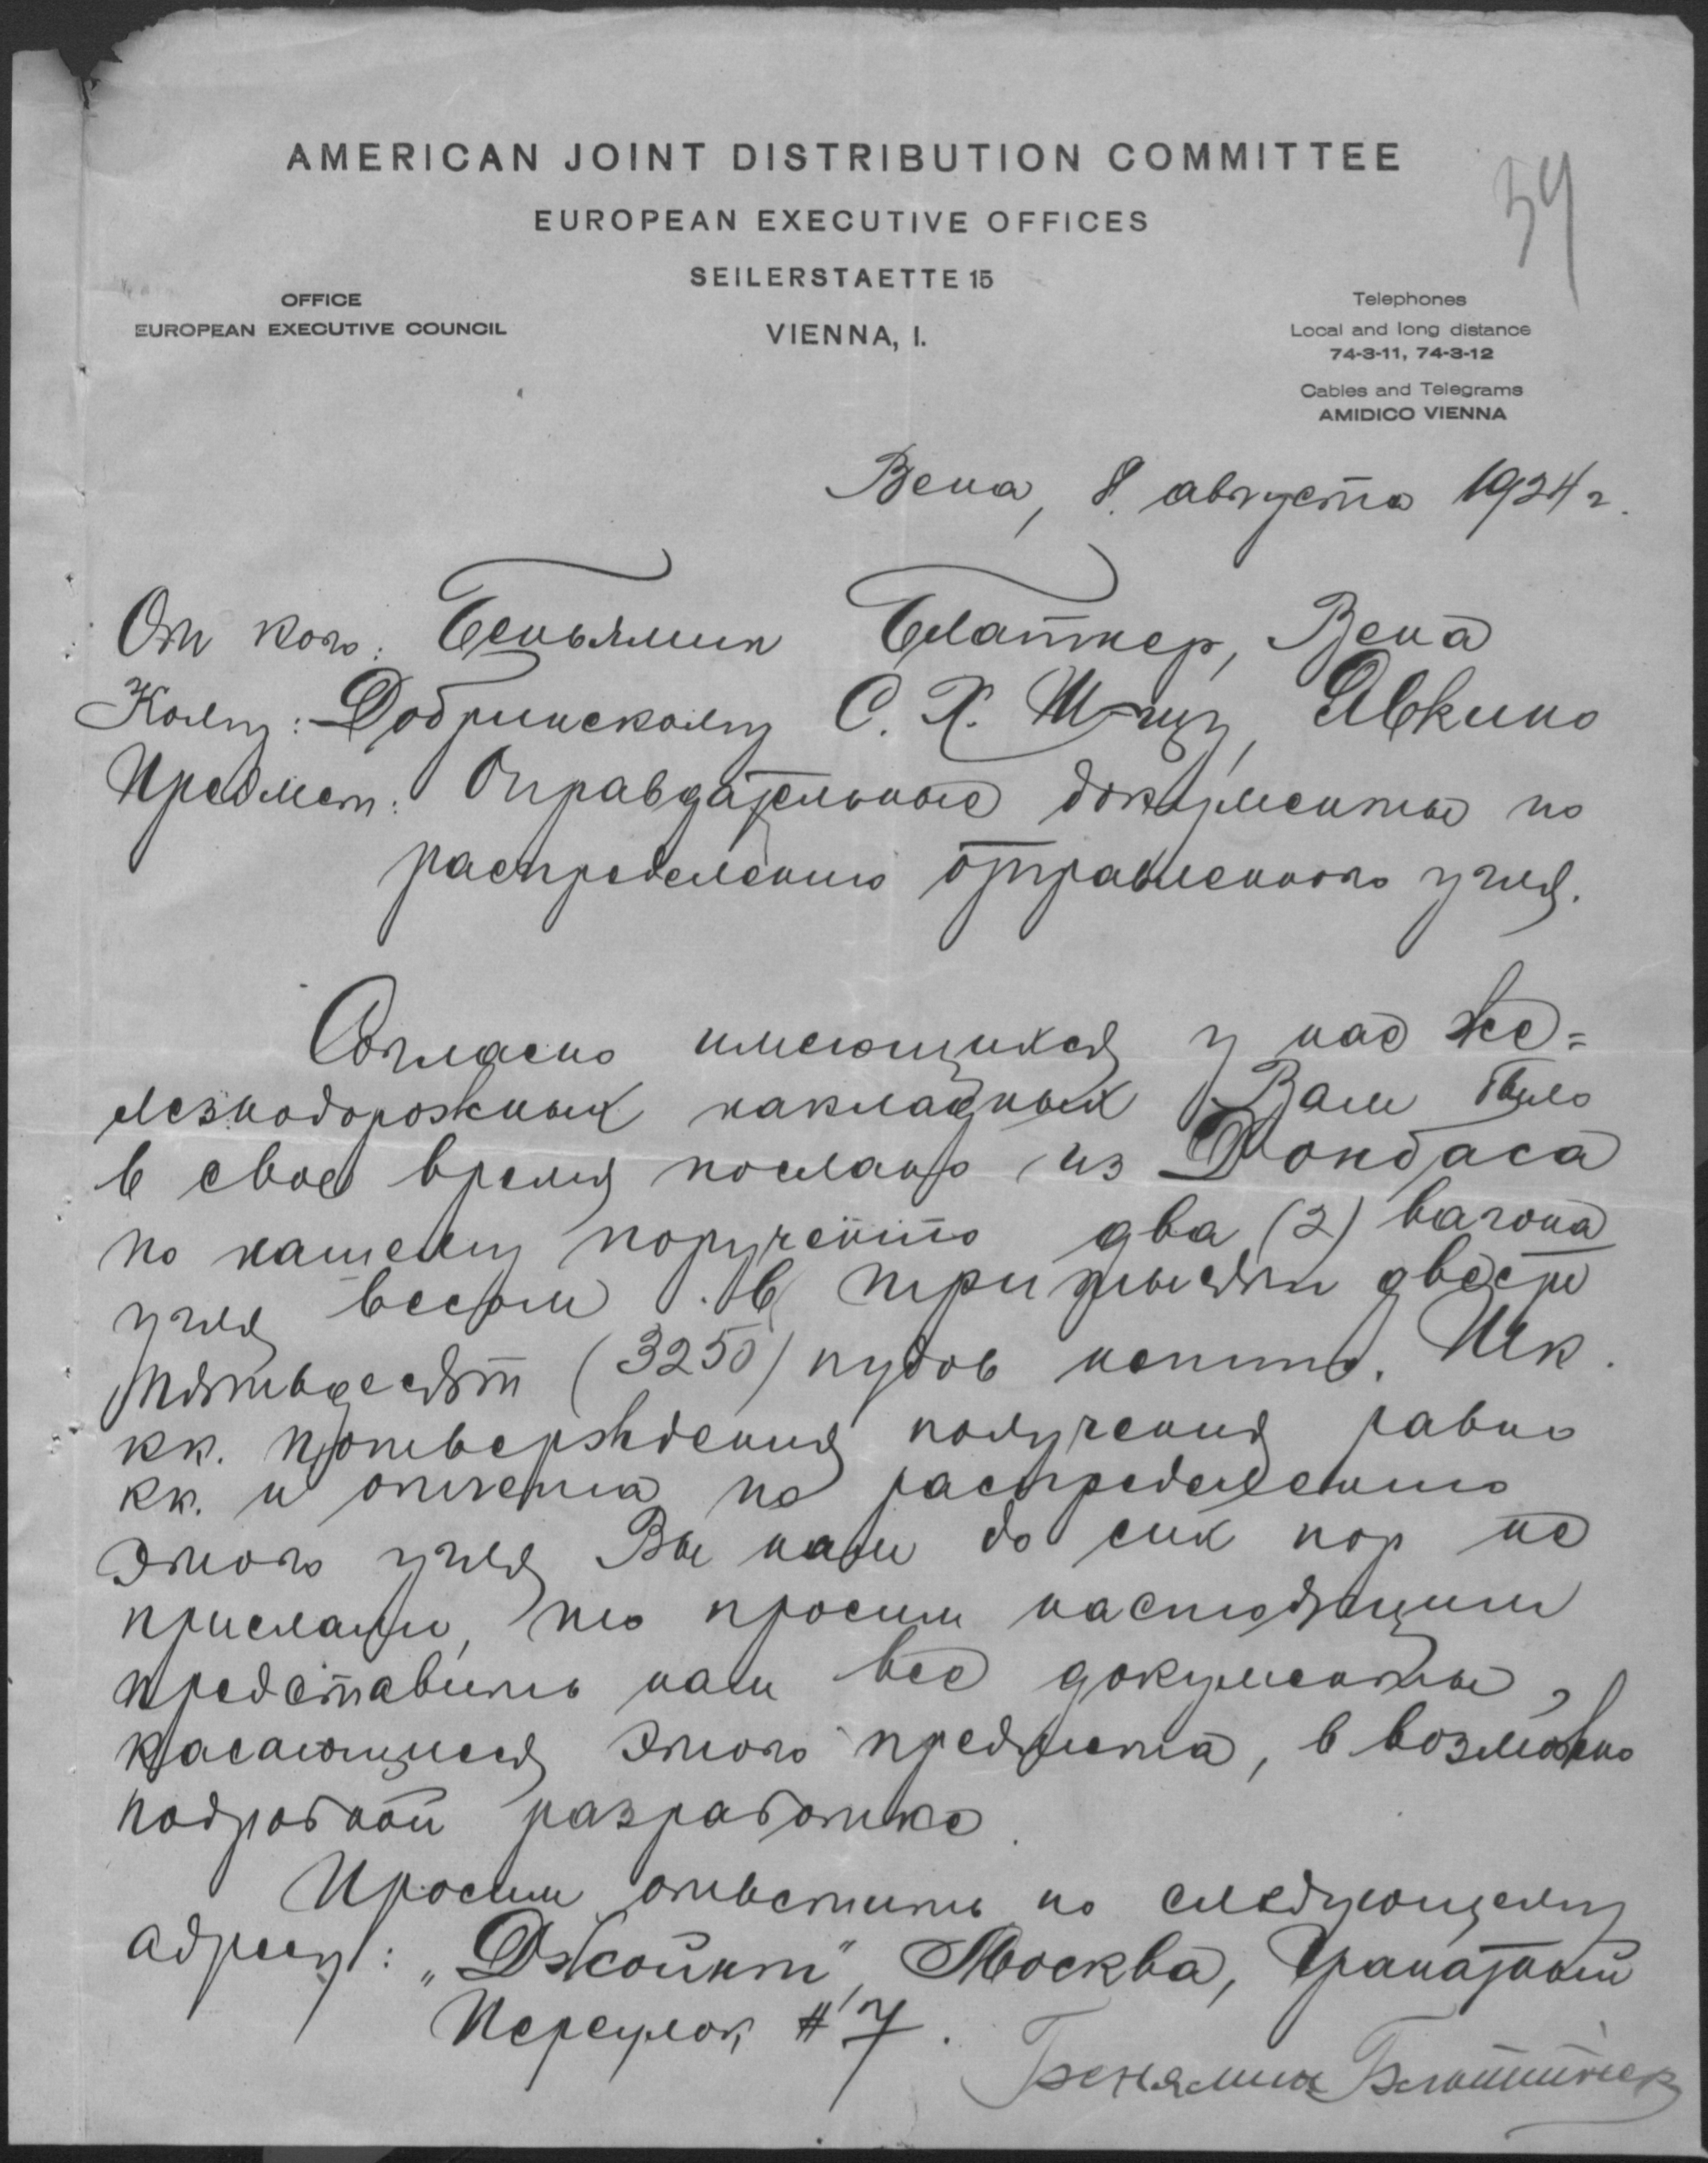 AMERICAN JOINT DISTRIBUTION COMMITTEE
EUROPEAN EXECUTIVE OFFICES
SEILERSTAETTE 15
VIENNA, I.
OFFICE
EUROPEAN EXECUTIVE COUNCIL
Telephones
Local and long distance
74-3-11, 74-3-12
Cables and Telegrams
AMIDICO VIENNA
Вена, 8. августа 1924 г.
От кого: Беньямин Блаттнер, Вена
Кому: Добринскому С. Х. Ш-щу, Явкино
Предмет: Оправдательные документы по
распределению отправленного угля.
Согласно имеющихся у нас же=
лезнодорожных накладных Вам было
в свое время послано из Донбаса
по нашему поручению два (2) вагона
угля весом в три тысячи двести
пятьдесят (3250) пудов нетто.
кк. потверждения получения равно
кк. и отчета по распределению
этого угля Вы нам до сих пор не
прислали, то просим настоящим
представить нам все документы,
касающиеся этого предмета, в возможно
подробной разработке.
Просим ответить по следующему
адресу: „Джойнт", Москва, Гранатный
Переулок #7.
Бенямин Блаттнер